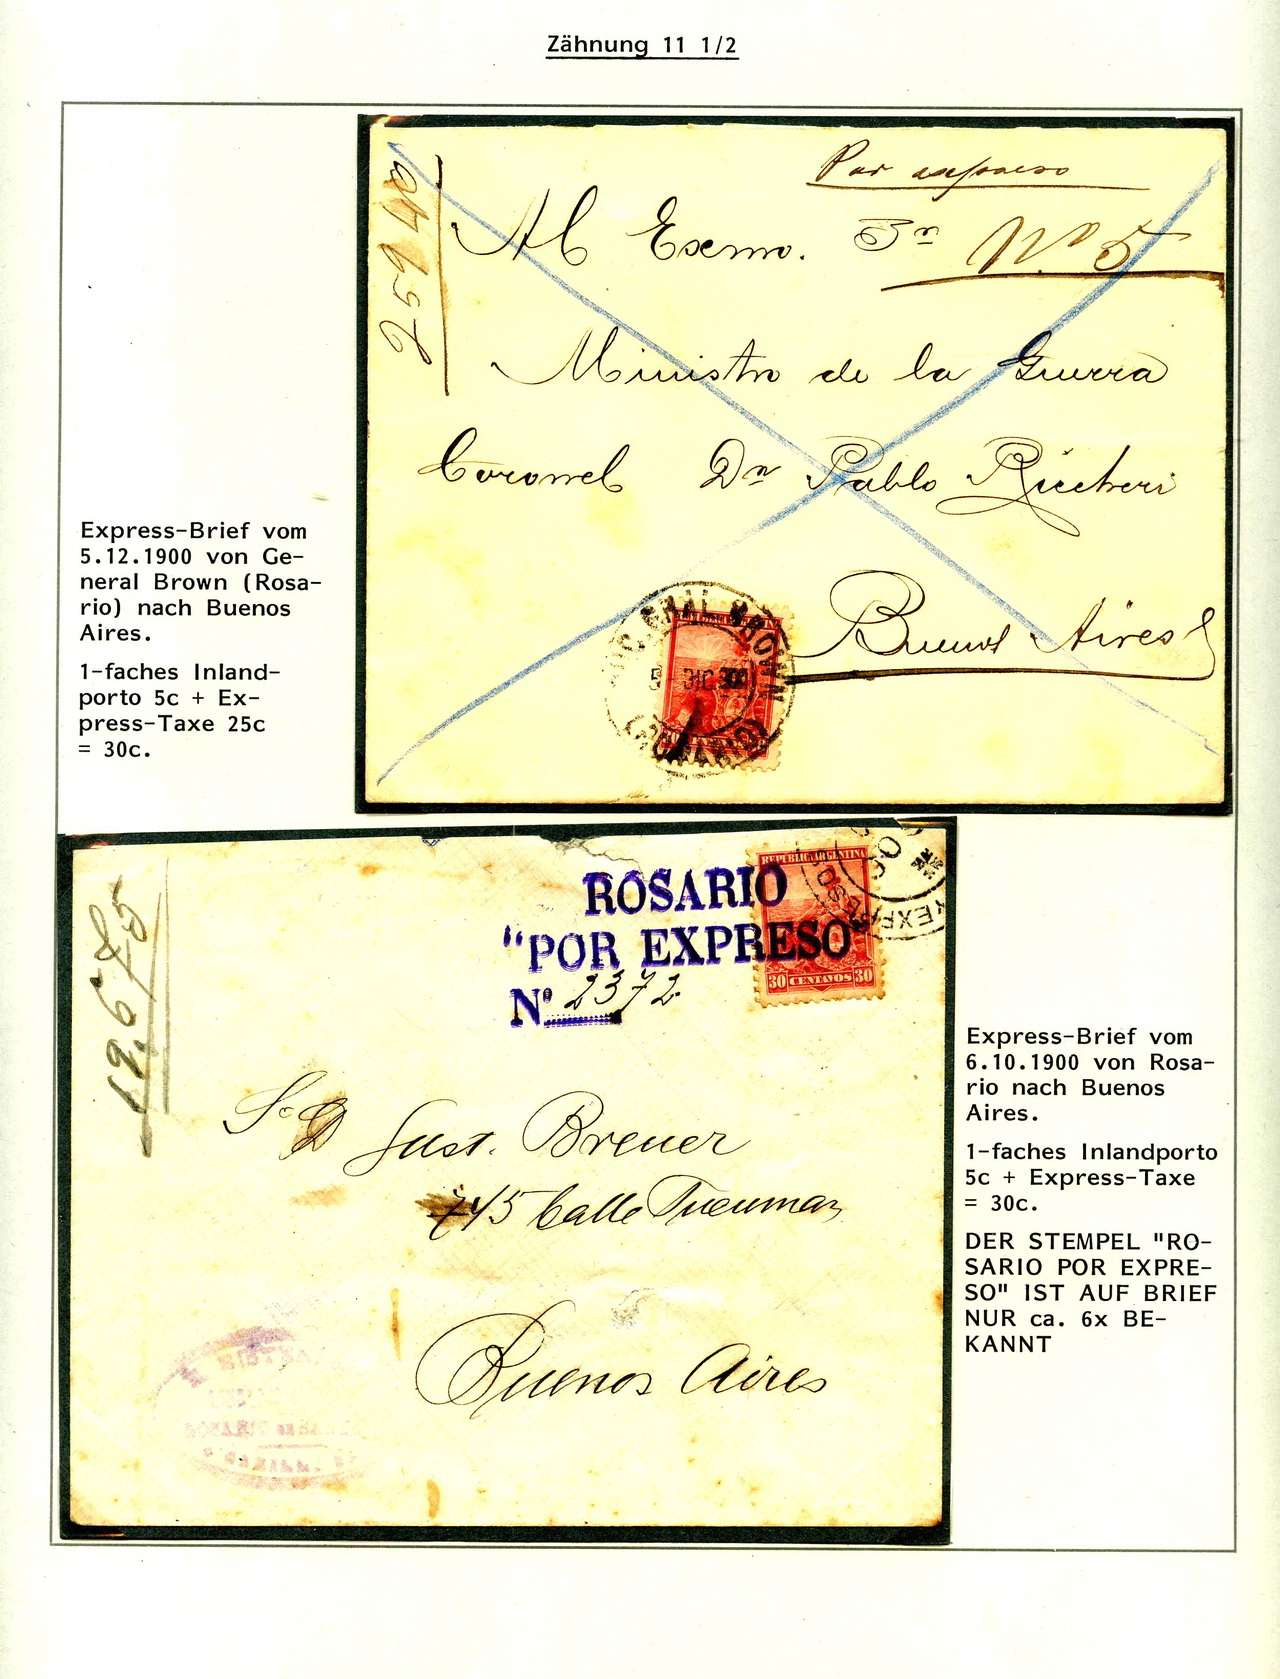 Zähnung 11 1/2
Por expreso
Al Exmo. Sr Nº 5
Ministro de la Guerra
Coronel Dn Pablo Riccheri
Buenos Aires
GRAL BROWN
5 DIC 900
(ROSARIO)
Express-Brief vom
5.12.1900 von Ge-
neral Brown (Rosa-
rio) nach Buenos
Aires.
1-faches Inland-
porto 5c + Ex-
press-Taxe 25c
= 30c.
ROSARIO
"POR EXPRESO"
Nº 2372
REPUBLICA ARGENTINA
30 CENTAVOS 30
S. D Gust. Breuer
745 Calle Tucuman
Buenos Aires
Express-Brief vom
6.10.1900 von Rosa-
rio nach Buenos
Aires.
1-faches Inlandporto
5c + Express-Taxe
= 30c.
DER STEMPEL "RO-
SARIO POR EXPRE-
SO" IST AUF BRIEF
NUR ca. 6x BE-
KANNT